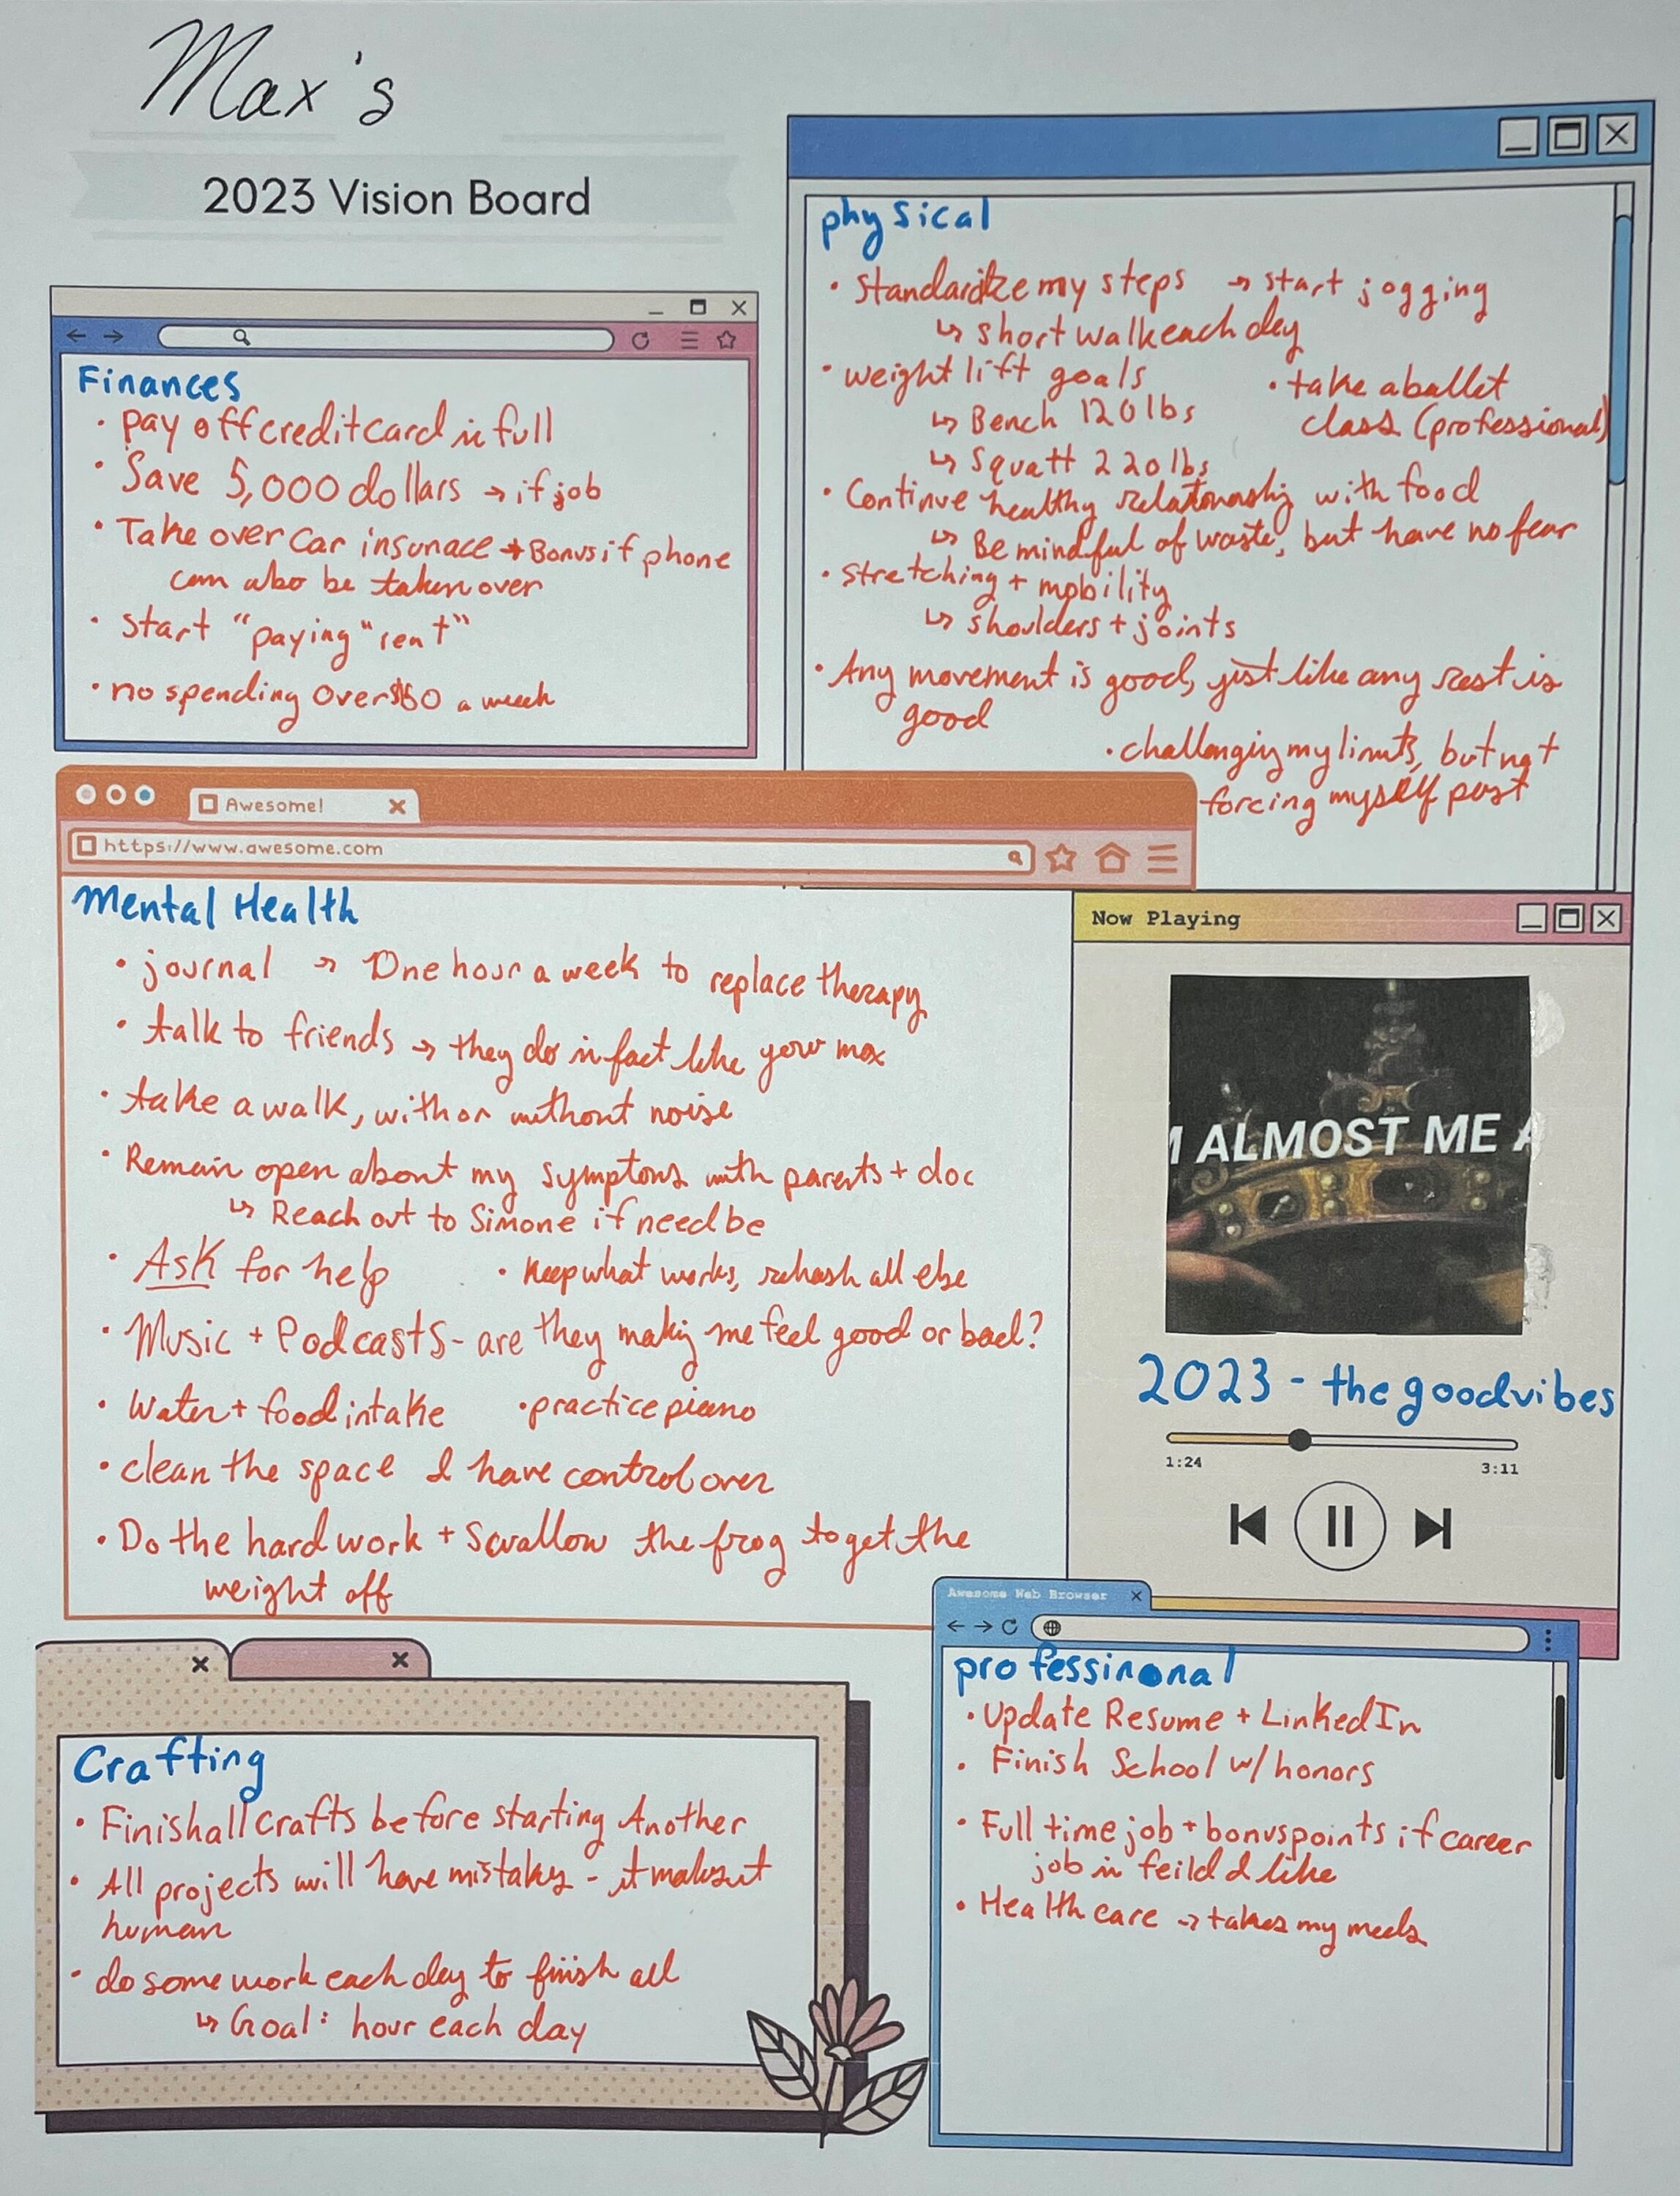 Max's
2023 Vision Board
Finances
• pay off credit card in full
• Save 5,000 dollars → if job
• Take over car insurnace → Bonus if phone
can also be taken over
• start "paying" rent"
• no spending over $ a week
physical
• standardize my steps → start jogging
↳ short walk each day
• weight lift goals
↳ Bench 120 lbs
↳ Squatt 220 lbs
• take a ballet
class (professional)
• Continue healthy relationship with food
↳ Be mindful of waste, but have no fear
• stretching + mobility
↳ shoulders + joints
• Any movement is good, just like any rest is
good
• challenging my limits, but not
forcing myself past
Awesome!
https://www.awesome.com
Mental Health
• journal → One hour a week to replace therapy
• talk to friends → they do in fact like you max
• take a walk, with or without noise
• Remain open about my symptoms with parents + doc
↳ Reach out to Simone if need be
• Ask for help • Keep what works, rehash all else
• Music + Podcasts - are they making me feel good or bad?
• Water + food intake • practice piano
• clean the space I have control over
• Do the hard work + Swallow the frog to get the
weight off
Now Playing
M ALMOST ME A
2023 - the good vibes
1:24 3:11
Crafting
• Finish all crafts before starting Another
• All projects will have mistakes - it makes it
human
• do some work each day to finish all
↳ Goal: hour each day
Awesome Web Browser
professinonal
• Update Resume + LinkedIn
• Finish School w/ honors
• Full time job + bonus points if career
job in feild I like
• Health care → takes my meds